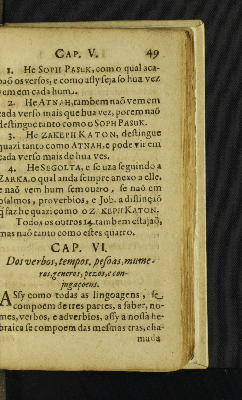 CAP. V. 49
1. He SOPH PASUK, com o qual aca-
baõ os versos, e como assy seja so hua vez
vem em cada hum.
2. He ATNAH, tambem naõ vem em
cada verso mais que hua vez, porem naõ
destingue tanto como o SOPH PASUK.
3. He ZAKEPH KATON, destingue
quazi tanto como ATNAH, e pode vir em
cada verso mais de hua ves.
4. He SEGOLTA, e se uza seguindo a
ZARKA, o qual anda sempre anexo a elle,
e naõ vem hum sem outro, se naõ em
psalmos, proverbios, e Job. a distinçaõ
q̃ faz he quazi como o ZAKEPH KATON.
Todos os outros 14. tambem estajaõ,
mas naõ tanto como estes quatro.
CAP. VI.
Dos verbos, tempos, pesoas, nume-
ros, generos, pezos, e con-
jugaçoens.
ASsy como todas as lingoagens, se
compoem de tres partes, a saber, no-
mes, verbos, e adverbios, assy a nossa he-
braica se compoem das mesmas tras, cha-
mada